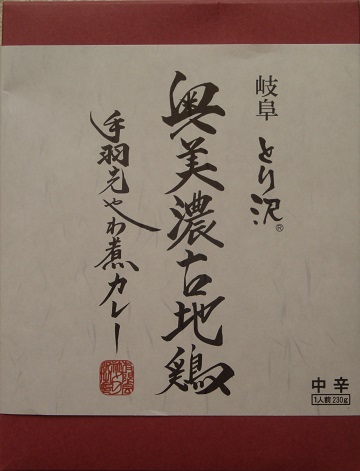 岐阜 とり沢®
奥美濃古地鶏
手羽先やわ煮カレー
中辛
1人前230g